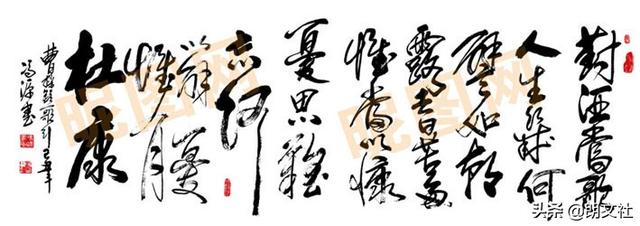 對酒當歌
人生幾何
譬如朝
露去日苦多
慨當以慷
憂思難
忘何
以解憂
惟有
杜康
曹操短歌行己丑年
冯源書
昵图网
昵图网
昵图网
头条 @朗文社